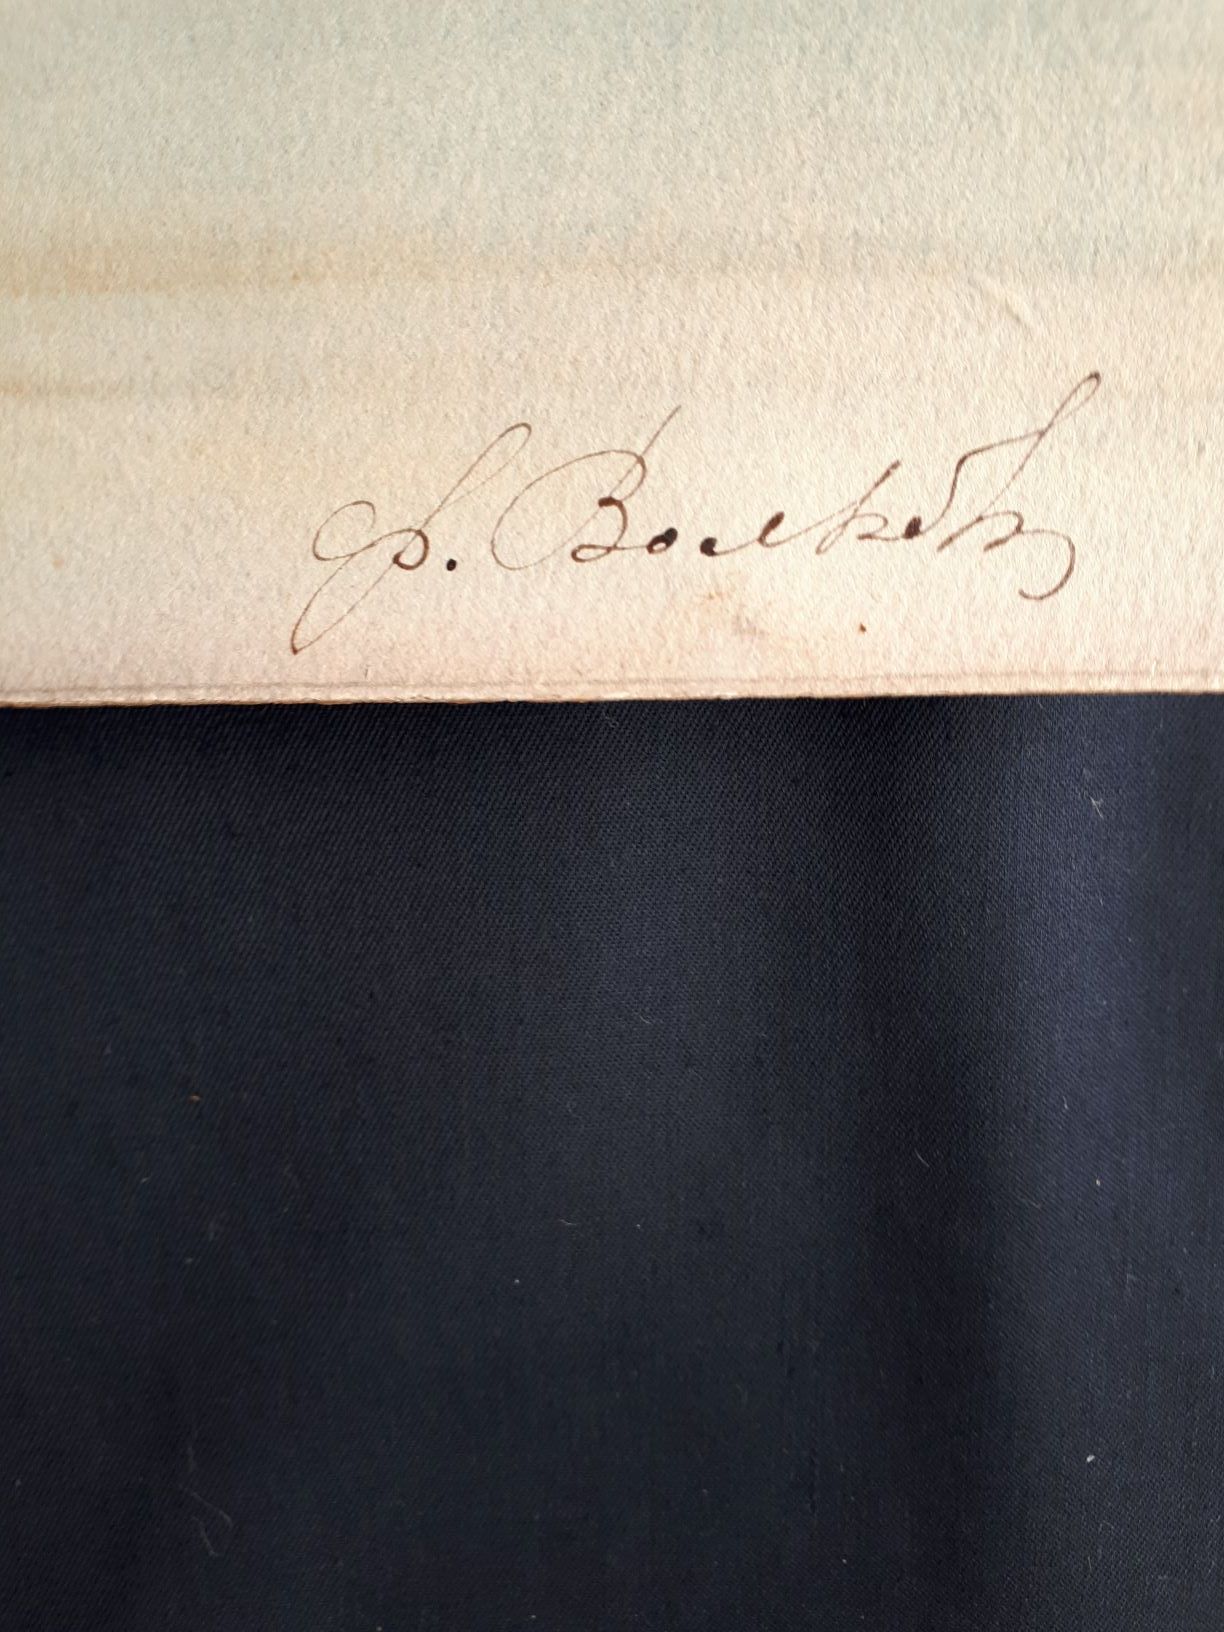 Ф. Волковъ